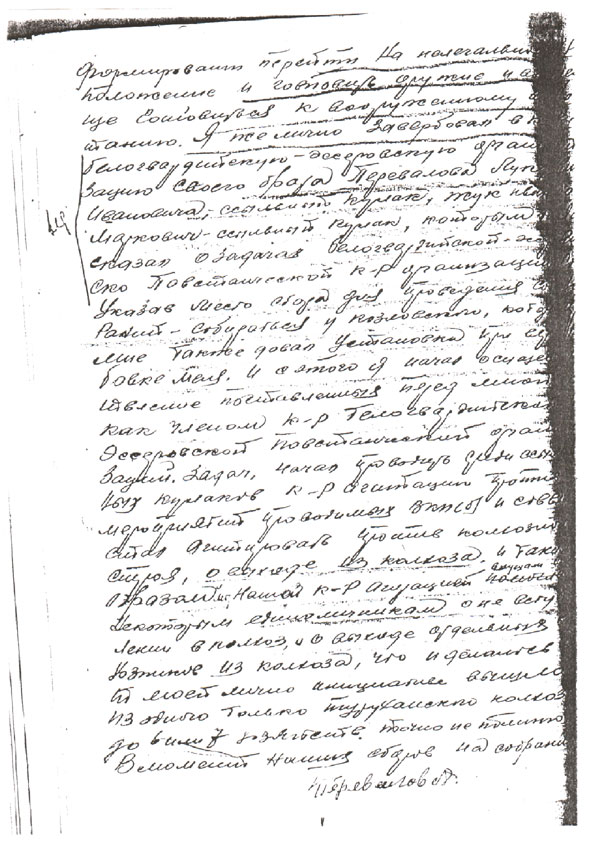 формировании перейти на нелегальн
положение и готовить оружие и
еще Готовиться к вооруженному
станию. Я же лично завербовал в к-р
белогвардейскую-эсеровскую органи
зацию своего брата Перевалова
Ивановича, ссыльный кулак, Жук
Маркович-ссыльный кулак, которым
сказал о задачах белогвардейской-эсе
ско Повстанческой к-р организации
Указав место сбора для проведения
собираться у Козловского, кото
мне также довал установки при вер
бовке меня. И с этого я начал осуще
ствление поставленных перед мною
как членом к-р белогвардейской
Эсеровской Повстанческой орган
зации. Задач, начал проводить среди ссыл
ных кулаков к-р агитацию против
мероприятий проводимых ВКП(б) и
стал агитировать против колхозн
строя, о выходе из колхоза. и таки
образом Нашей к-р Агитацией
Некоторым единоличникам о не всту
лении в колхоз, и о выходе отдельных
из колхоза, что и делалось
по моей лично инициативе вышло
из одного только туруханского колхоз
до 6 или 7 хозяйств, точно не помню
В момент Наших сборов на собрани
Перевалов